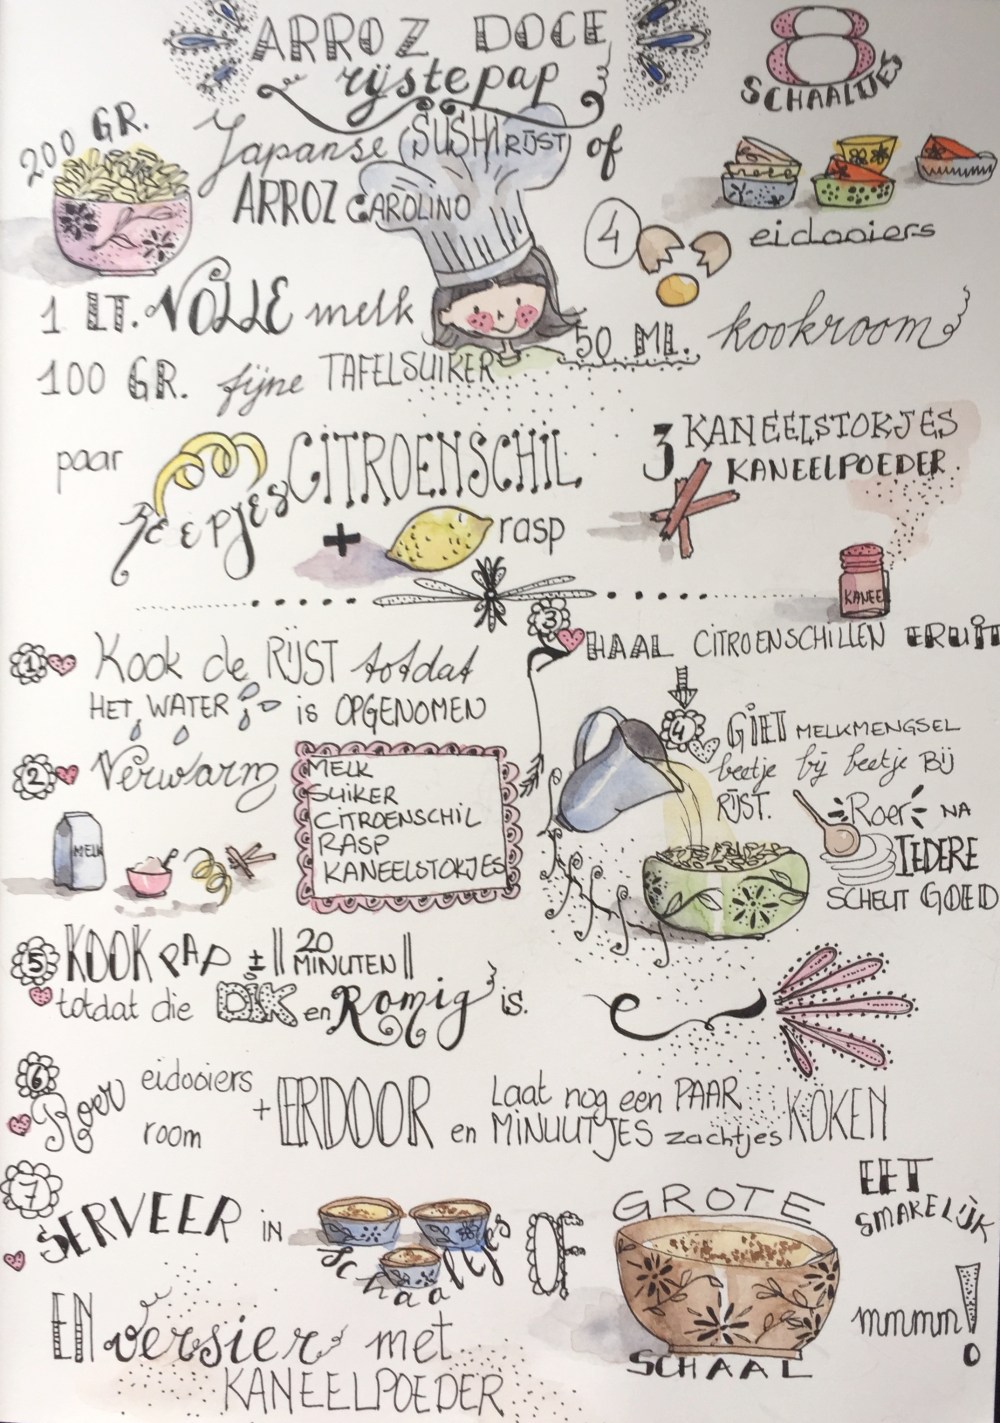 ARROZ DOCE
rijstepap
8
SCHAALTJES
200 GR.
Japanse (SUSHIRIJST) of
ARROZ CAROLINO
4
eidooiers
1 LT. VOLLE melk
50 ML. kookroom
100 GR. fijne TAFELSUIKER
paar
REEPJES CITROENSCHIL
+ rasp
3 KANEELSTOKJES
KANEELPOEDER.
KANEEL
1 Kook de RIJST totdat
HET WATER is OPGENOMEN
2 Verwarm
MELK
MELK
SUIKER
CITROENSCHIL
RASP
KANEELSTOKJES
3 HAAL CITROENSCHILLEN ERUIT
4 GIET MELKMENGSEL
beetje bij beetje BIJ
RIJST.
Roer NA
IEDERE
SCHEUT GOED
5 KOOK PAP ± 20 MINUTEN
totdat die DIK en Romig is.
6 Roer eidooiers
room
+ ERDOOR en Laat nog een PAAR
MINUUTJES zachtjes KOKEN
7 SERVEER in schaaltjes OF
GROTE
SCHAAL
EN versier met
KANEELPOEDER
EET
SMAKELIJK
mmmm!